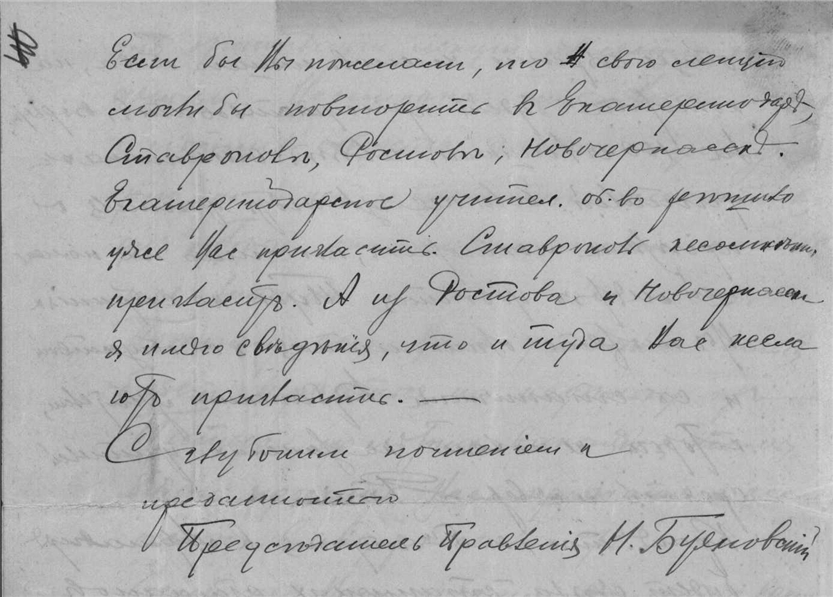 Если бы Вы пожелали, то свою лекцию
могли бы повторить въ Екатеринодарѣ,
Ставрополѣ, Ростовѣ, Новочеркасскѣ.
Екатеринодарское учител. об-во решило
уже Вас пригласить. Ставрополь несомнѣнно
пригласитъ. А из Ростова и Новочеркасска
я имѣю свѣдѣнія, что и туда Вас жела
ютъ пригласить. —
С глубоким почтеніем и
преданностью
Предсѣдатель Правленія Н. Буяновский